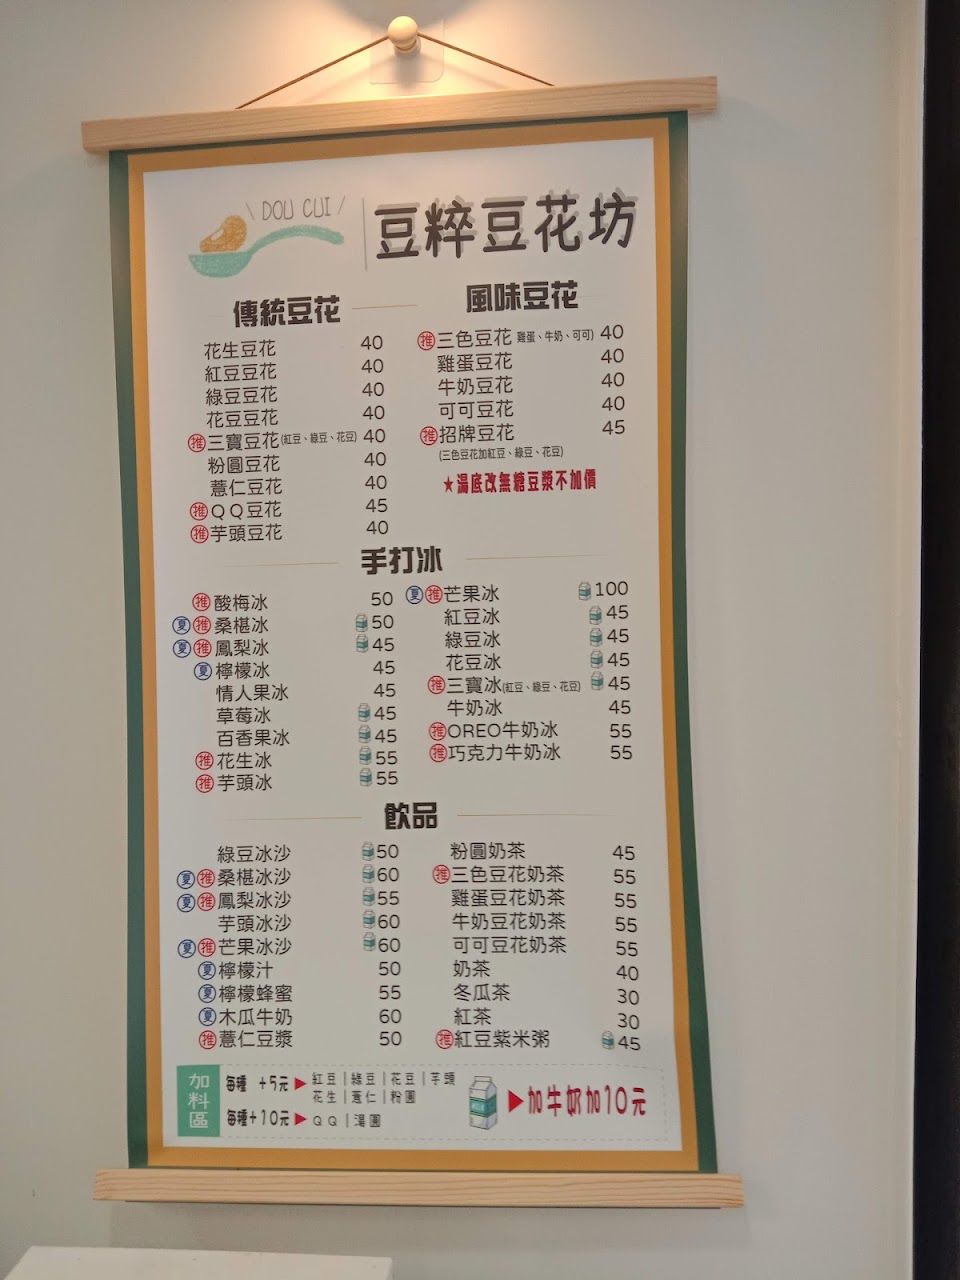 \ DOU CUI /
豆粹豆花坊
傳統豆花
花生豆花 40
紅豆豆花 40
綠豆豆花 40
花豆豆花 40
推 三寶豆花(紅豆、綠豆、花豆) 40
粉圓豆花 40
薏仁豆花 40
推 QQ豆花 45
推 芋頭豆花 40
風味豆花
推 三色豆花 雞蛋、牛奶、可可) 40
雞蛋豆花 40
牛奶豆花 40
可可豆花 40
推 招牌豆花 45
(三色豆花加紅豆、綠豆、花豆)
★湯底改無糖豆漿不加價
手打冰
推 酸梅冰 50
夏 推 桑椹冰 50
夏 推 鳳梨冰 45
夏 檸檬冰 45
情人果冰 45
草莓冰 45
百香果冰 45
推 花生冰 55
推 芋頭冰 55
夏 推 芒果冰 100
紅豆冰 45
綠豆冰 45
花豆冰 45
推 三寶冰(紅豆、綠豆、花豆) 45
牛奶冰 45
推 OREO牛奶冰 55
推 巧克力牛奶冰 55
飲品
綠豆冰沙 50
夏 推 桑椹冰沙 60
夏 推 鳳梨冰沙 55
芋頭冰沙 60
夏 推 芒果冰沙 60
夏 檸檬汁 50
夏 檸檬蜂蜜 55
夏 木瓜牛奶 60
推 薏仁豆漿 50
粉圓奶茶 45
推 三色豆花奶茶 55
雞蛋豆花奶茶 55
牛奶豆花奶茶 55
可可豆花奶茶 55
奶茶 40
冬瓜茶 30
紅茶 30
推 紅豆紫米粥 45
加料區
每種 +5元 ▶ 紅豆｜綠豆｜花豆｜芋頭
花生｜薏仁｜粉圓
每種+10元 ▶ QQ｜湯圓
▶加牛奶加10元